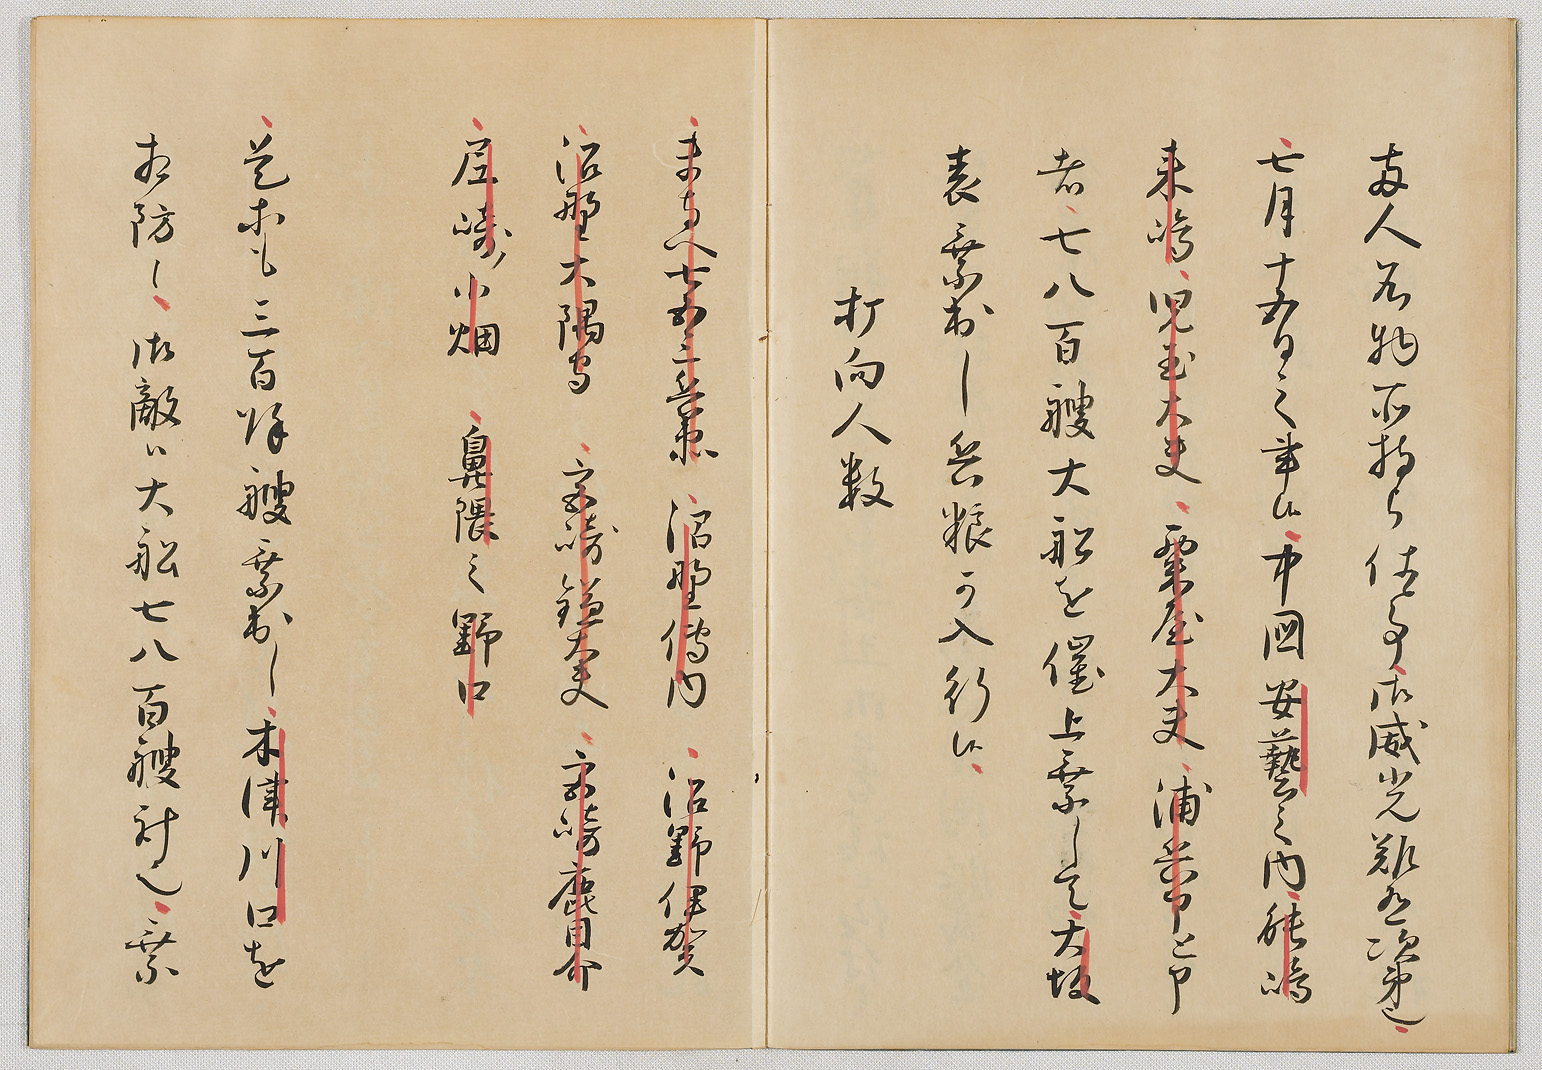 両人名物所持候仕事御威光難有次第也
七月十五日之事候中国安藝之内能嶋
来嶋児玉大夫粟屋大夫浦兵部と申
者七八百艘大船を催上乗して大坂
表乗出し兵粮可入行候
打向人数
まなへ七五三兵衛 沼野傳内 沼野伊賀
沼野大隅守 宮崎鎌大夫 宮崎鹿目介
尼崎小畑 鼻隈之野口
是等も三百餘艘乗出し木津川口を
相防し御敵ハ大船七八百艘計也乗